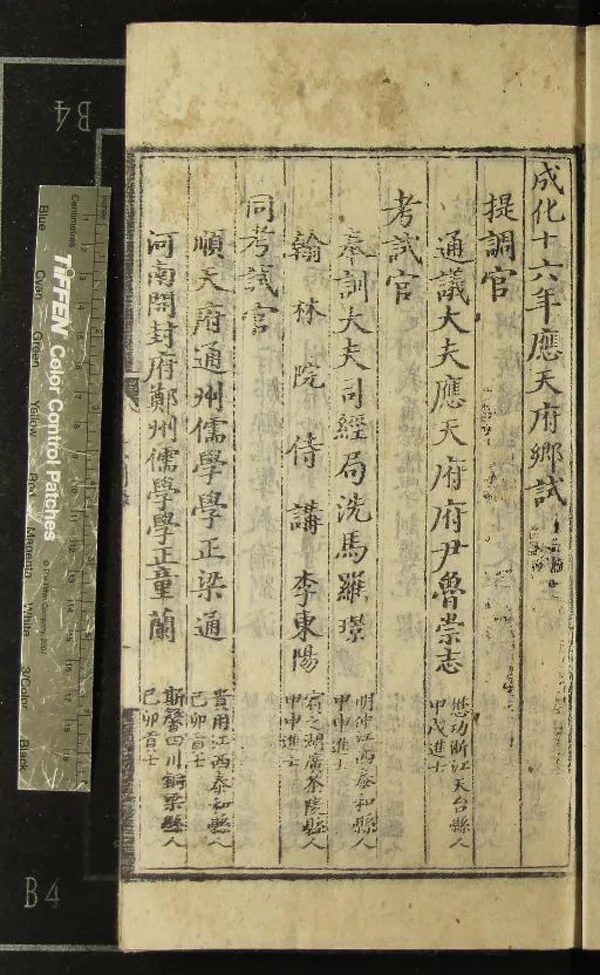 成化十六年應天府鄉試
提調官
通議大夫應天府府尹魯崇志
懋功浙江天台縣人
甲戌進士
考試官
奉訓大夫司經局洗馬羅璟
明仲江西泰和縣人
甲申進士
翰林院侍講李東陽
賓之湖廣茶陵縣人
甲申進士
同考試官
順天府通州儒學學正梁通
貴用江西泰和縣人
己卯貢士
河南開封府鄭州儒學學正童蘭
斯馨四川銅梁縣人
己卯貢士
B4
B4
Inches
Centimetres
TIFFEN Color Control Patches
Blue
Cyan
Green
Yellow
Red
Magenta
White
3/Color
Black